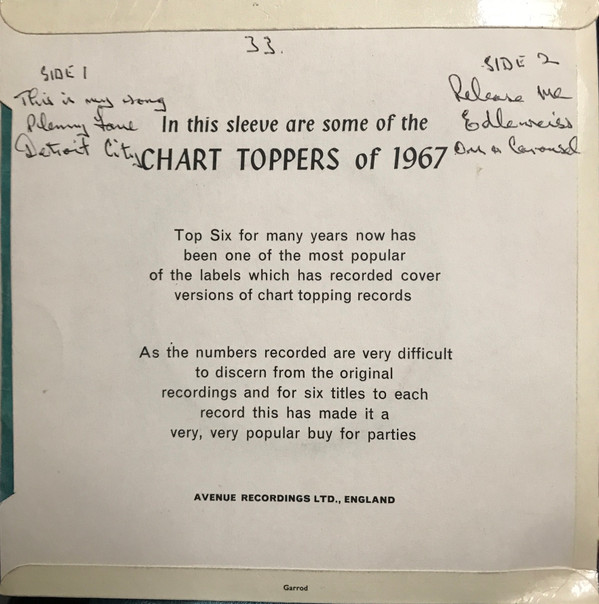 33.
SIDE 1
This is my song
Penny Lane
Detroit City
SIDE 2
Release Me
Edleweiss
On a Carousel
In this sleeve are some of the
CHART TOPPERS of 1967
Top Six for many years now has
been one of the most popular
of the labels which has recorded cover
versions of chart topping records
As the numbers recorded are very difficult
to discern from the original
recordings and for six titles to each
record this has made it a
very, very popular buy for parties
AVENUE RECORDINGS LTD., ENGLAND
Garrod